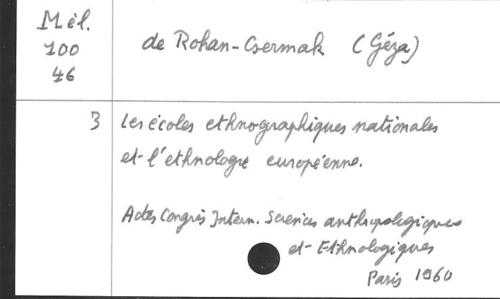 Mél.
100
46
de Rohan-Csermak (Géza)
3 Les écoles ethnographiques nationales
et l'ethnologie européenne.
Actes Congrès Intern. Sciences anthropologiques
et Ethnologiques
Paris 1960